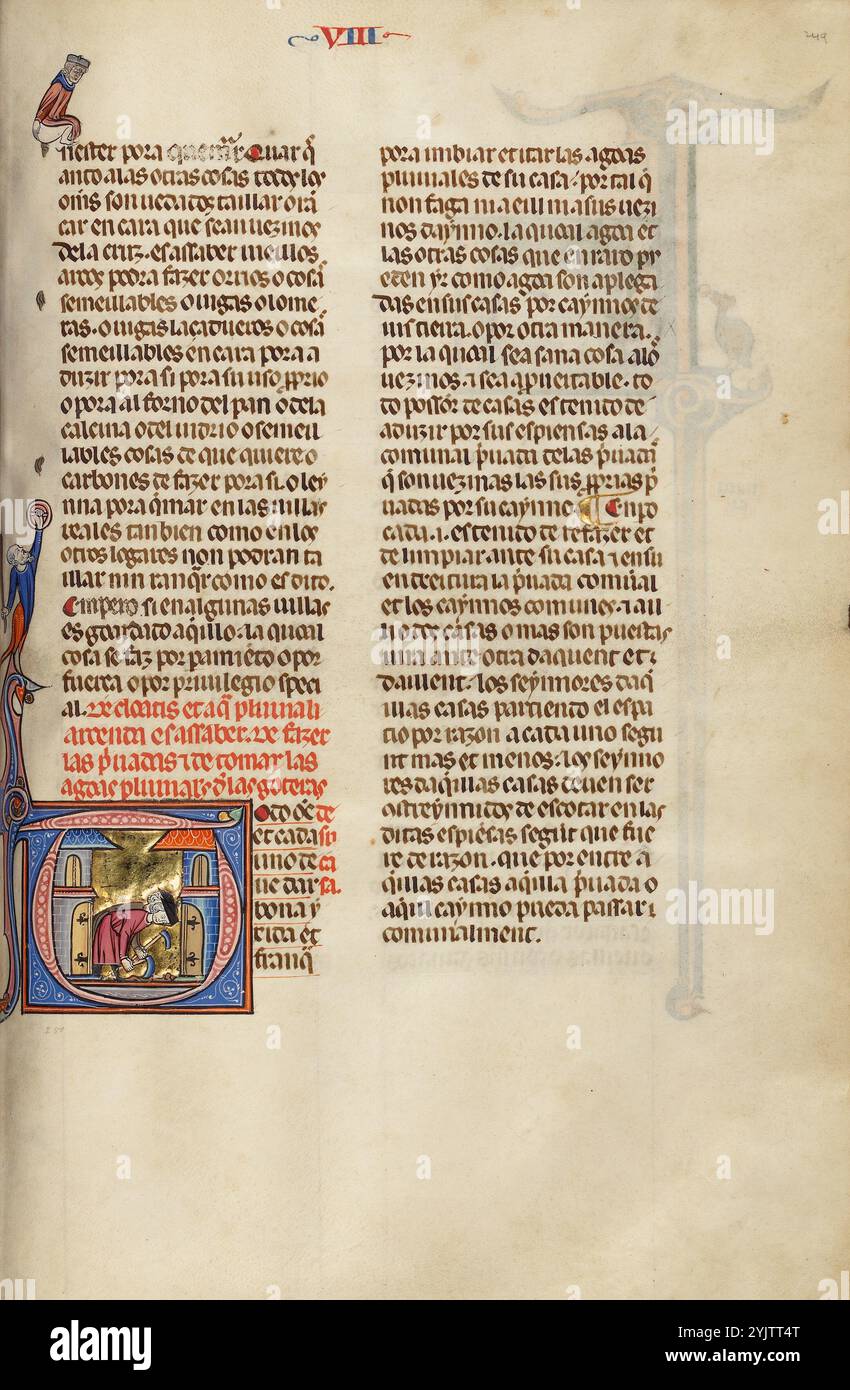 VIII
249
nester pora quemar Quar q̄
anto alas otras cosas todos los
om̄s son uedados taillar o ran
car en cara que sean uezinos
dela cruz. es assaber meillos
arbores podra fazer ornos o cosas
semeillables o uigas o lome
ras. o uigas
semeillables en cara pora a
duzir pora si pora su uso p̄prio
o pora al forno del pan o dela
calcina o del uidrio o semeil
lables cosas de que quiere o
carbones de fazer pora si. o ley
nna pora q̄mar en las uillas
reales tan bien como en los
otros logares non podran ta
illar nin ranq̄r como es dito.
Empero si en algunas uillas
es goardado aq̄llo. la qual
cosa se faz por paramiēto o por
fuerça o por priuilegio speci
al. De cloacis et aq̄ pluuiali
arcenda es assaber. De fazer
las p̄uadas ⁊ de tomar las
agoas pluuiales. ⁊ d̄ las goteras
odo ōe de
et cada su
uno de ca
ue dar sa.
bona y
dida et
franq̄
pora imbiar et itar las agoas
pluuiales de su casa. por tal q̄
non faga mal en ni a sus uezi
nos daynno. la qual agoa et
las otras cosas que en raro pu
eden yr como agoa son aplega
das en sus casas por caynnos de
ius tierra. o por otra manera.
por la qual sea sana cosa alos
uezinos a sea ap̄ueitable. to
do possor de casas es tenido de
aduzir por sus espiensas a la
comunal p̄uada delas p̄uadas
q̄ son uezinas las sus p̄prias p̄
uadas por su caynno Enpo
cada .i. es tenido de refazer et
de limpiar. ante su casa ⁊ en su
endreitura la p̄uada comunal
et los caynnos comunes. ⁊ all
li o dos casas o mas son puestas
una ante otra daquent et
daillent. los seynnores daq̄
illas casas partiendo el espa
cio por razon a cada uno segu
nt mas et menos. los seynno
res daq̄llas casas deuen ser
astreynnidos de escotar en las
ditas espiēsas segūt que fue
re de razon. que por entre a
q̄llas casas aq̄lla p̄uada o
aq̄l caynno pueda passar
comunalment.
250
alamy
Image ID: 2YJTT4T
www.alamy.com